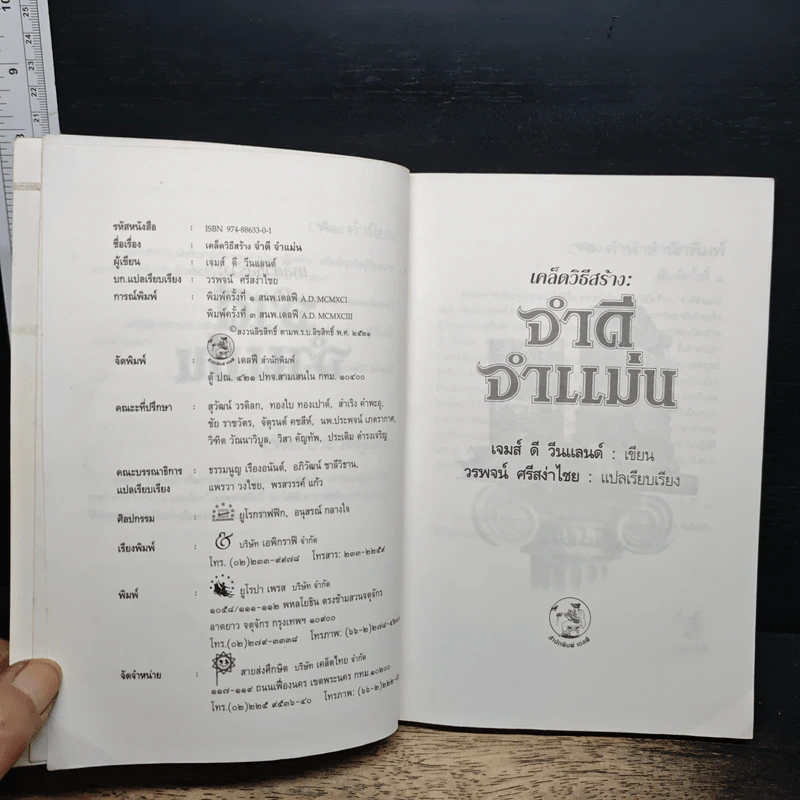 รหัสหนังสือ : ISBN 974-88633-0-1
ชื่อเรื่อง : เคล็ดวิธีสร้าง จำดี จำแม่น
ผู้เขียน : เจมส์ ดี วีนแลนด์
บก.แปลเรียบเรียง : วรพจน์ ศรีสง่าไชย
การณ์พิมพ์ : พิมพ์ครั้งที่ ๑ สนพ.เดลฟี A.D. MCMXCI
พิมพ์ครั้งที่ ๓ สนพ.เดลฟี A.D. MCMXCIII
©สงวนลิขสิทธิ์ ตามพ.ร.บ.ลิขสิทธิ์ พ.ศ. ๒๕๒๑
จัดพิมพ์ : เดลฟี สำนักพิมพ์
ตู้ ปณ. ๔๒๑ ปทจ.สามเสนใน กทม. ๑๐๔๐๐
คณะที่ปรึกษา : สุวัฒน์ วรดิลก, ทองใบ ทองเปาด์, สำเริง คำพะอุ,
ชัย ราชวัตร, จัตุรนต์ คชสีห์, นพ.ประพจน์ เภตรากาศ,
วิฑิต วัณนาวิบูล, วิสา คัญทัพ, ประเดิม ดำรงเจริญ
คณะบรรณาธิการ : ธรรมนูญ เรืองอนันต์, อภิวัฒน์ ชาลีวิธาน,
แปลเรียบเรียง แพรวา วงไชย, พรสวรรค์ แก้ว
ศิลปกรรม : ยูโรกราฟฟิก, อนุสรณ์ กลางใจ
เรียงพิมพ์ : บริษัท เอพิกราฟี จำกัด
โทร. (๐๒)๒๓๓-๙๙๗๘ โทรสาร: ๒๓๓-๒๒๕๙
พิมพ์ : ยูโรปา เพรส บริษัท จำกัด
๑๐๕๔/๑๑๑-๑๑๒ พหลโยธิน ตรงข้ามสวนจตุจักร
ลาดยาว จตุจักร กรุงเทพฯ ๑๐๙๐๐
โทร.(๐๒)๒๗๙-๓๓๓๘ โทรภาพ: (๖๖-๒)๒๗๘-
จัดจำหน่าย : สายส่งศึกษิต บริษัท เคล็ดไทย จำกัด
๑๑๗-๑๑๙ ถนนเฟื่องนคร เขตพระนคร กทม.๑๐๒๐๐
โทร.(๐๒)๒๒๕ ๙๕๓๖-๔๐ โทรภาพ: (๖๖-๒)๒๒๒-
เคล็ดวิธีสร้าง:
จำดี
จำแม่น
เจมส์ ดี วีนแลนด์ : เขียน
วรพจน์ ศรีสง่าไชย : แปลเรียบเรียง
สำนักพิมพ์ เดลฟี